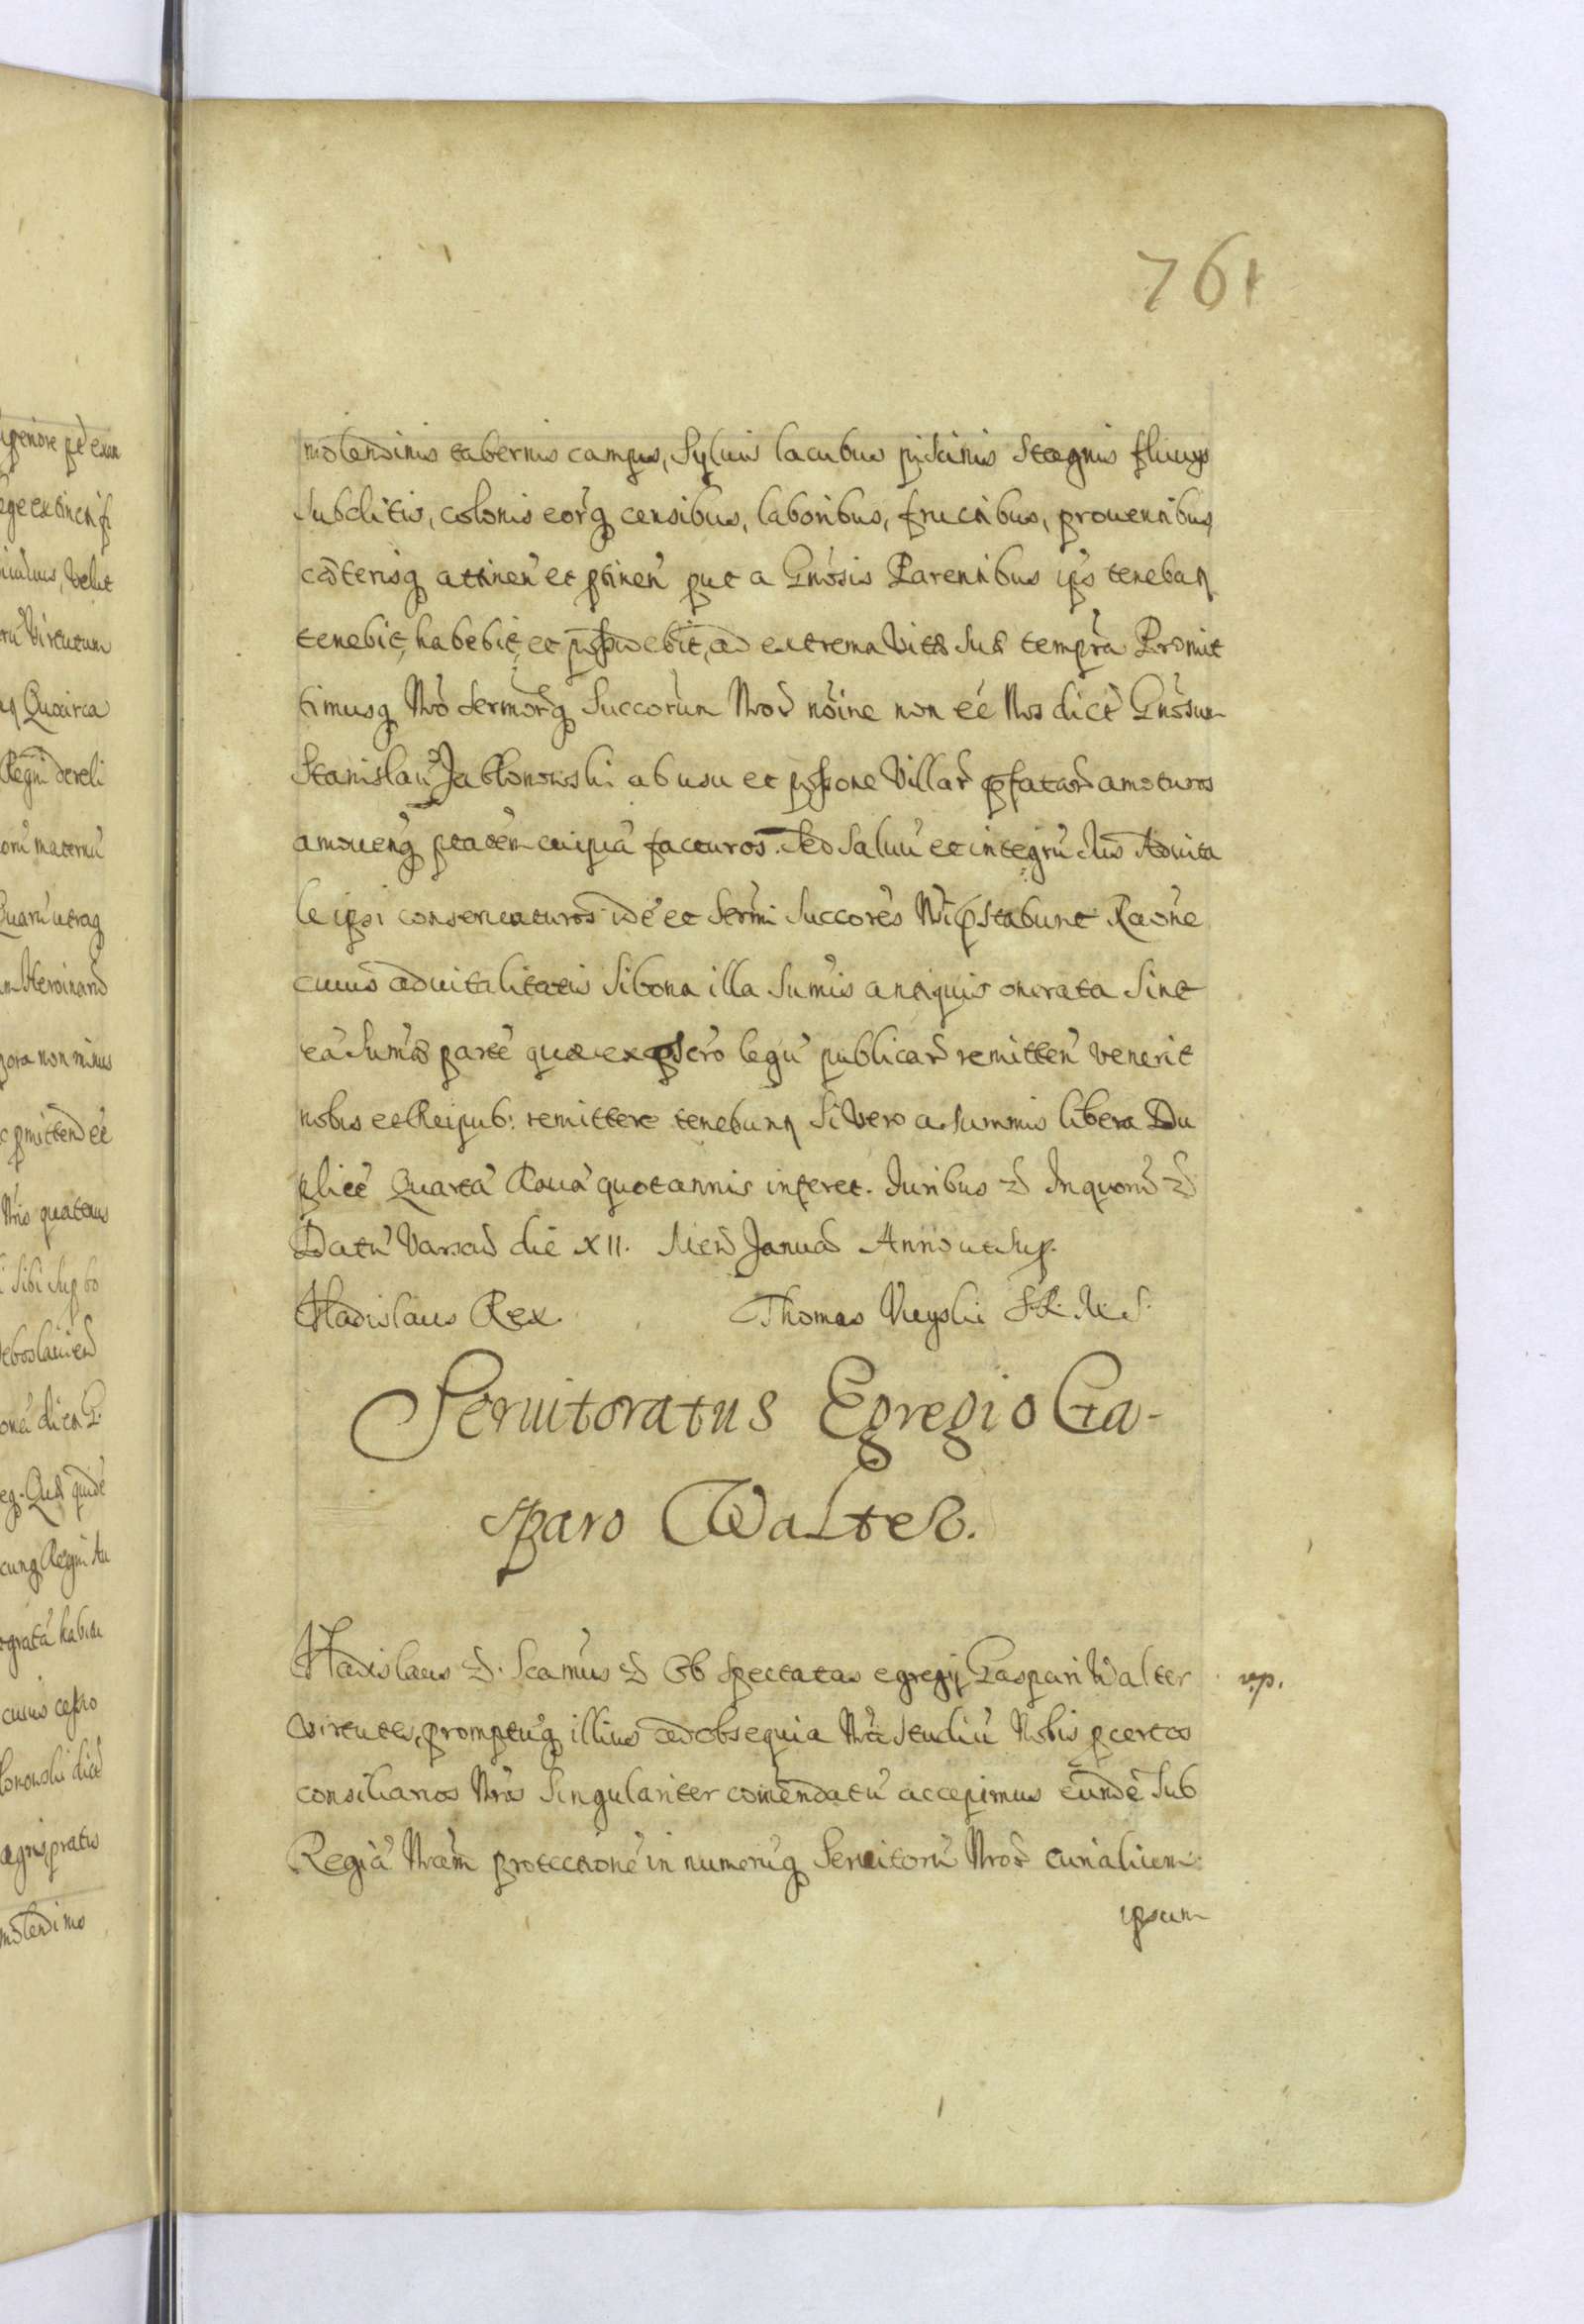 761
molendinis tabernis campis, Syluis lacubus piscinis Stagnis fluuys
Subditis, colonis eorq censibus, laboribus, fructibus, prouentibus
caeterisq attinen et ptinen put a Gnosis Parentibus ips tenebat
tenebit, habebit, et possidebit, ad extrema Vitae Suae tempra Promit
timusq Nro Sermorq Succorum Nror noine non eé Nos dict Gnosum
Stanislau Jabłonowski ab usu et possone Villar pfatar amoturos
amouenq ptatem cuipia facturos. Sed Saluu et integru Jus Aduita
le ipsi conseruaturos idé et Sermi Succores Nri pstabunt Raone
cuius aduitalitatis Si bona illa Sumis antiquis onerata Sint
eá Sumae parté quae ex pscro legu publicar remitten venerit
nobis et Reipub: remittere tenebunt Si Vero a Summis libera Du
plicé Quartá Rauá quotannis inferet. Juribus & In quoru &
Datu Varsau die XII. Mens Januar Anno ut Sup.
Vladislaus Rex. Thomas Vieyski S. R. M. S.
Seruitoratus Egregio Ga-
sparo Walter.
Vladislaus &. Scamus & Ob Spectatas egregij Gaspari Walter
np.
virtutes, promptuq illius ad obsequia Nra Studiu Nobis p certos
consiliarios Nros Singulariter comendatu accepimus eundé Sub
Regiá Nram protectioné in numeruq Seruitoru Nror curialium
ipsum